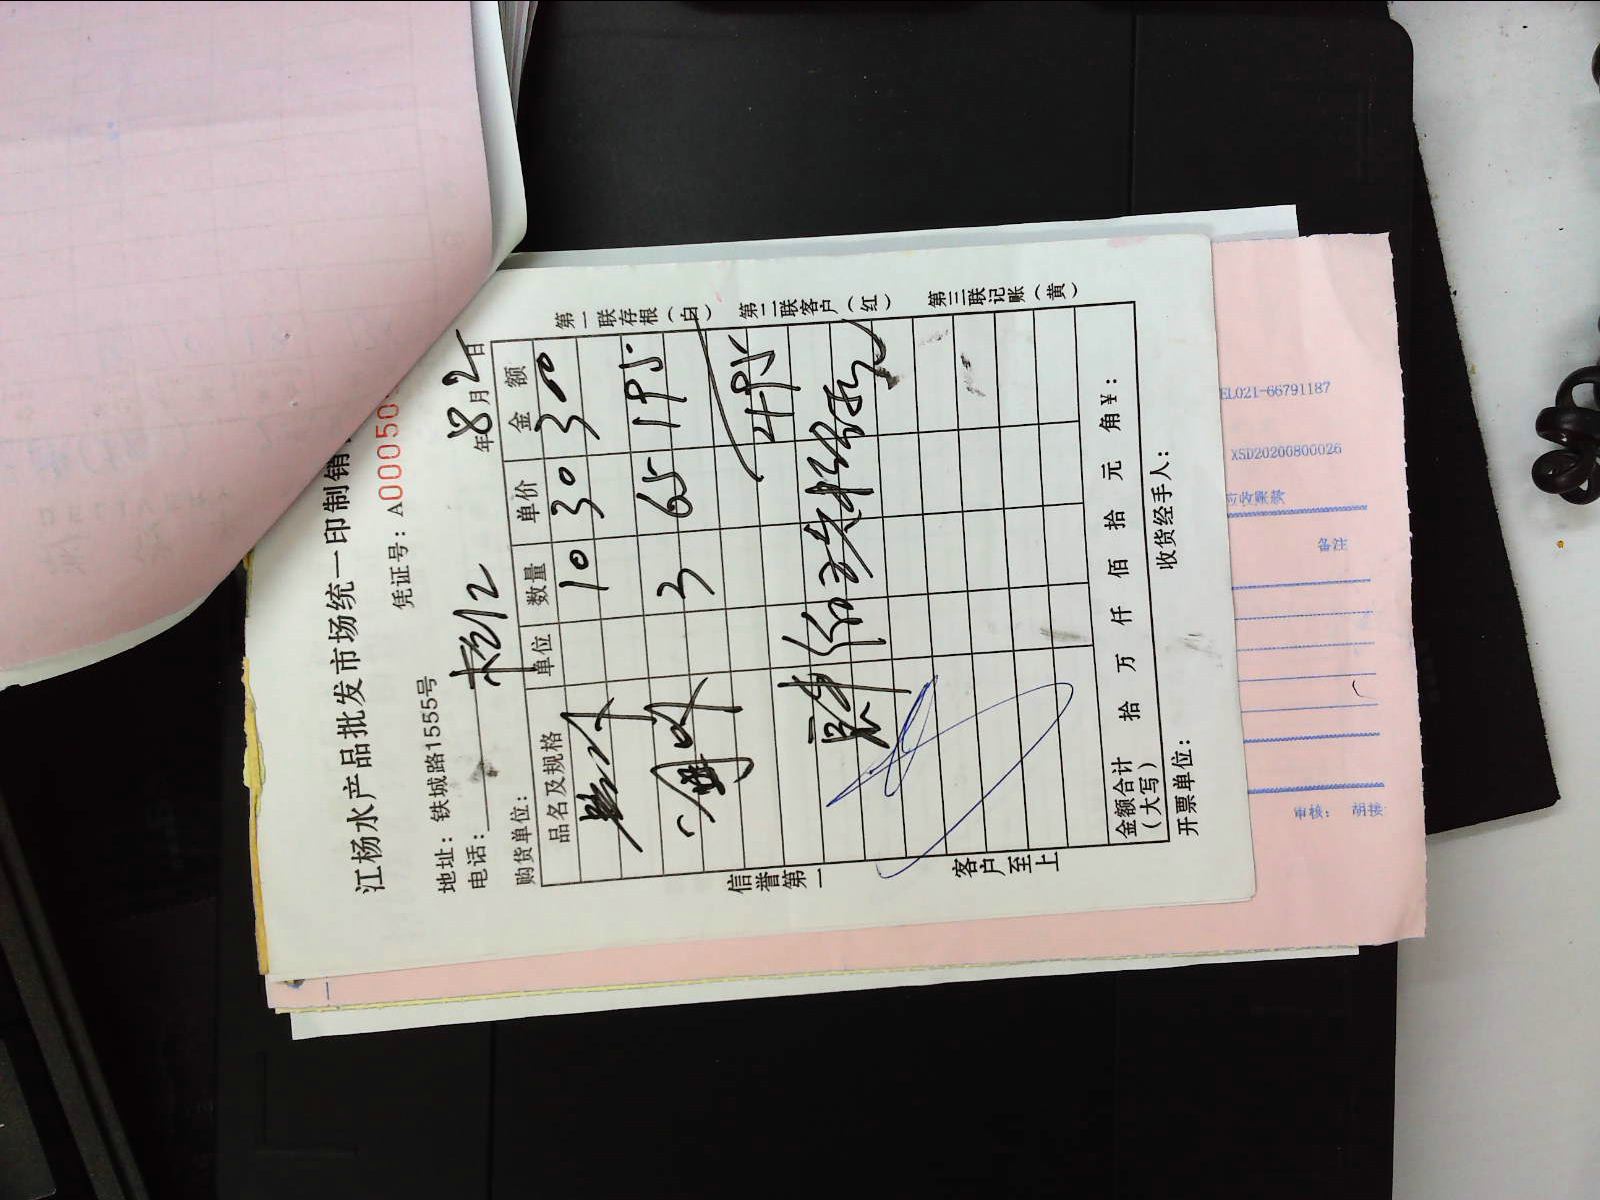 江杨水产品批发市场统一印制销
地址：铁城路1555号 凭证号：A000050
电话：
购货单位： 年8月2日
品名及规格 单位 数量 单价 金额
10 30 300
3 65 195
495
金额合计（大写） 拾 万 仟 佰 拾 元 角 ¥：
开票单位： 收货经手人：
第一联存根（白） 第二联客户（红） 第三联记账（黄）
信誉第一 客户至上
EL021-66791187
XSD20200800026
应收票券
备注
审核： 胡接